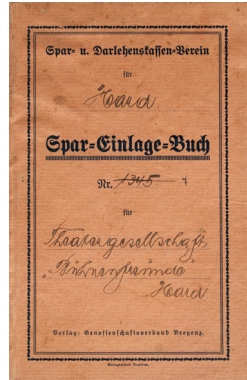 Spar- u. Darlehenskassen-Verein
für
Hard
Spar-Einlage-Buch
Nr. 1345 7
für
Theatergesellschaft
„Bühnenfreunde
Hard
Verlag: Genossenschaftsverband Bregenz.